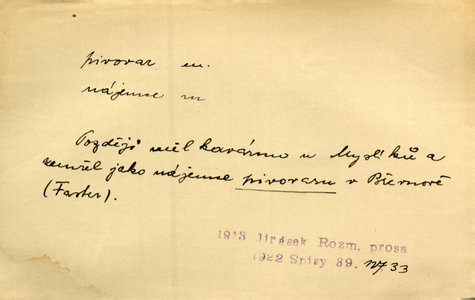 pivovar m.
nájemce m
Později měl kavárnu u Myslíků a
zemřel jako nájemce pivovaru v Břevnově
(Faster).
1913 Jirásek Rozm. prosa
1922 Spisy 39. 33